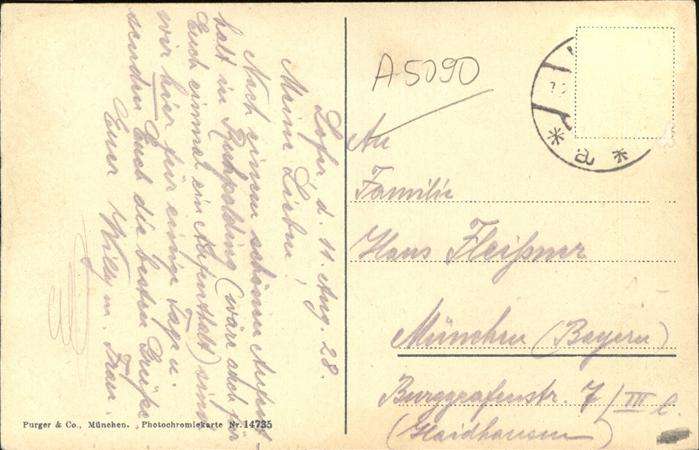 Lofer d. 11. Aug. 28.
Meine Lieben!
Nach einem schönen Aufent-
halt in Ruhpolding (wäre auch für
Euch einmal ein Aufenthalt) sind
wir hier für einige Tage u.
senden Euch die besten Grüße
Euer Willy m. Frau.
A5090
An
Familie
Hans Fleißner
München (Bayern)
Burggrafenstr. 7/III l.
(Haidhausen)
* a *
Purger & Co., München. Photochromiekarte Nr. 14735